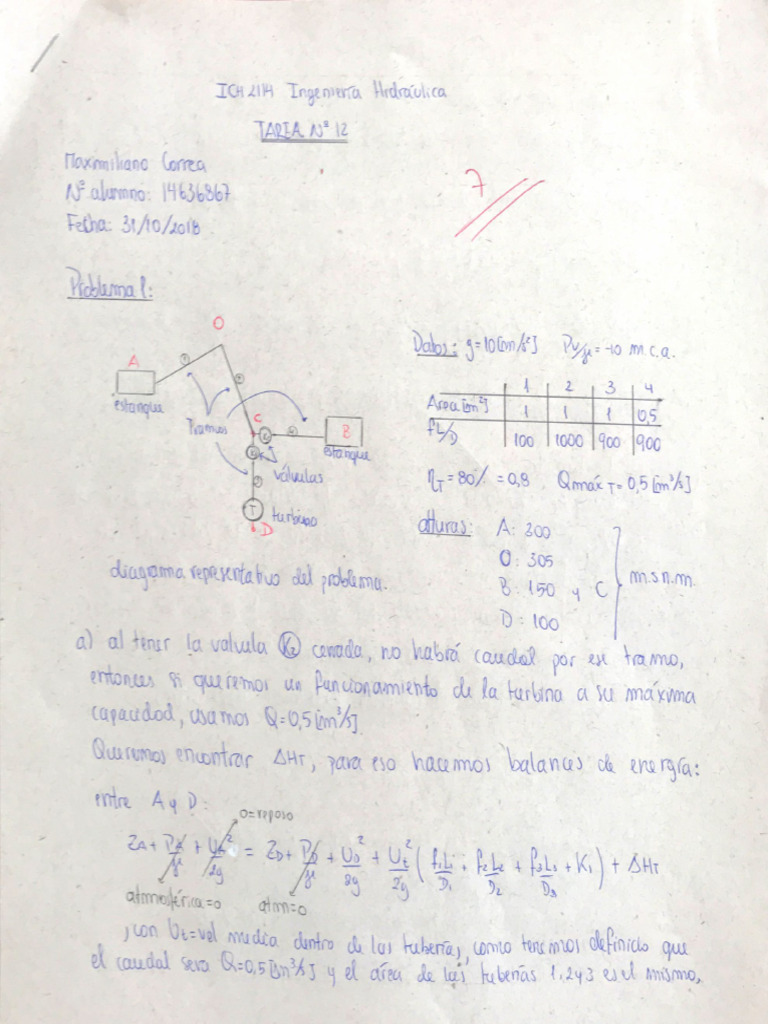 ICH2114 Ingeniería Hidráulica
TAREA Nº 12
Maximiliano Correa
Nº alumno: 14636867
Fecha: 31/10/2018
7
Problema 1:
O
A
estanque
1
2
Tramos
C
K2
4
B
estanque
K1
válvulas
3
T
turbina
D
diagrama representativo del problema.
Datos: g=10[m/s²] Pv/γ = -10 m.c.a.
1 2 3 4
Area[m²] 1 1 1 0,5
fL/D 100 1000 900 900
ηT = 80% = 0,8 Qmáx T = 0,5 [m³/s]
alturas: A: 300
O: 305
B: 150 y C
D: 100
m.s.n.m.
a) al tener la valvula K2 cerrada, no habrá caudal por ese tramo,
entonces si queremos un funcionamiento de la turbina a su máxima
capacidad, usamos Q=0,5[m³/s].
Queremos encontrar ΔHT, para eso hacemos balances de energía:
entre A y D:
0=reposo
ZA + PA/γ + UA²/2g = ZD + PD/γ + UD²/2g + Ut²/2g ( f1L1/D1 + f2L2/D2 + f3L3/D3 + K1 ) + ΔHT
atmosférica=0 atm=0
, con Ut=vel media dentro de las tubería, como tenemos definido que
el caudal sera Q=0,5[m³/s] y el área de las tuberías 1,2y3 es el mismo,